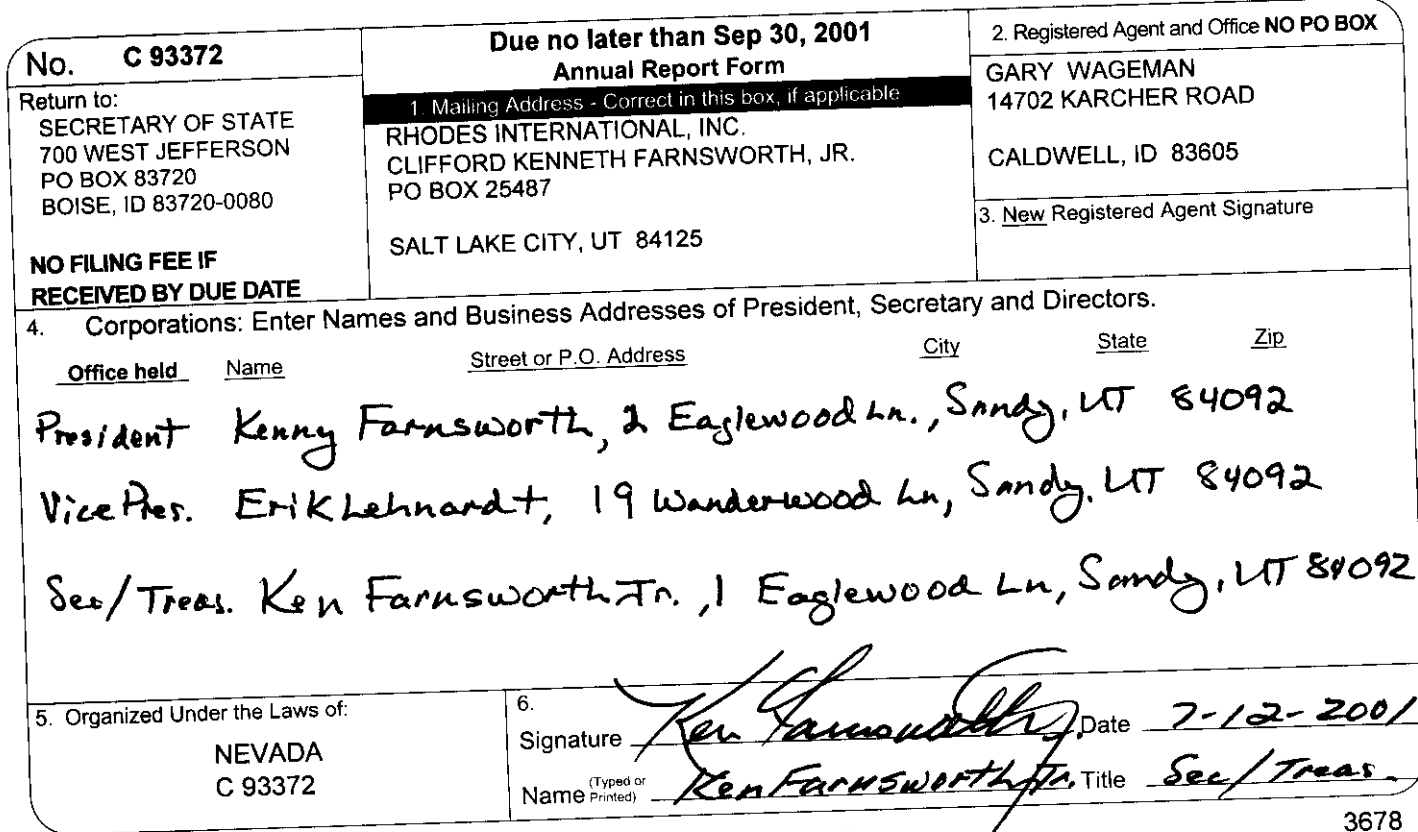 No. C 93372
Return to:
SECRETARY OF STATE
700 WEST JEFFERSON
PO BOX 83720
BOISE, ID 83720-0080
NO FILING FEE IF
RECEIVED BY DUE DATE
Due no later than Sep 30, 2001
Annual Report Form
1. Mailing Address - Correct in this box, if applicable
RHODES INTERNATIONAL, INC.
CLIFFORD KENNETH FARNSWORTH, JR.
PO BOX 25487
SALT LAKE CITY, UT 84125
2. Registered Agent and Office NO PO BOX
GARY WAGEMAN
14702 KARCHER ROAD
CALDWELL, ID 83605
3. New Registered Agent Signature
4. Corporations: Enter Names and Business Addresses of President, Secretary and Directors.
Office held Name Street or P.O. Address City State Zip
President Kenny Farnsworth, 2 Eaglewood Ln., Sandy, UT 84092
Vice Pres. Erik Lehnardt, 19 Wanderwood Ln, Sandy, UT 84092
Sec/Treas. Ken Farnsworth Jr., 1 Eaglewood Ln, Sandy, UT 84092
5. Organized Under the Laws of:
NEVADA
C 93372
6.
Signature Ken Farnsworth Jr. Date 7-12-2001
Name (Typed or Printed) Ken Farnsworth Jr. Title Sec/Treas.
3678